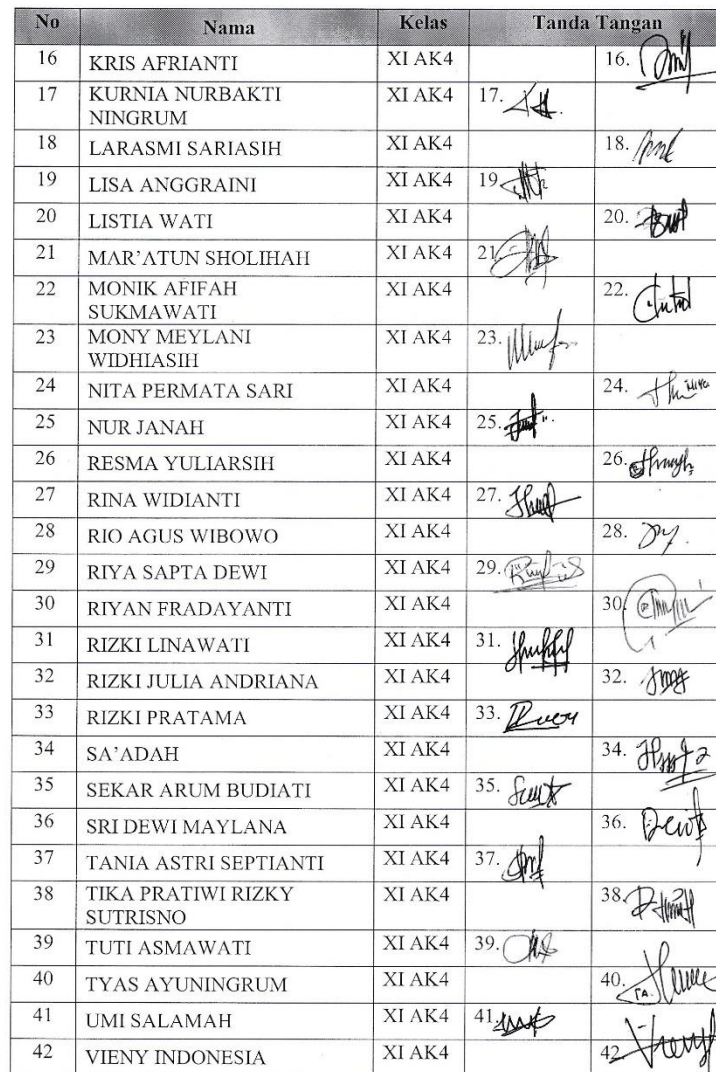 No Nama Kelas Tanda Tangan
16 KRIS AFRIANTI XI AK4 16.
17 KURNIA NURBAKTI NINGRUM XI AK4 17.
18 LARASMI SARIASIH XI AK4 18.
19 LISA ANGGRAINI XI AK4 19
20 LISTIA WATI XI AK4 20.
21 MAR'ATUN SHOLIHAH XI AK4 21
22 MONIK AFIFAH SUKMAWATI XI AK4 22.
23 MONY MEYLANI WIDHIASIH XI AK4 23.
24 NITA PERMATA SARI XI AK4 24.
25 NUR JANAH XI AK4 25.
26 RESMA YULIARSIH XI AK4 26.
27 RINA WIDIANTI XI AK4 27.
28 RIO AGUS WIBOWO XI AK4 28.
29 RIYA SAPTA DEWI XI AK4 29.
30 RIYAN FRADAYANTI XI AK4 30.
31 RIZKI LINAWATI XI AK4 31.
32 RIZKI JULIA ANDRIANA XI AK4 32.
33 RIZKI PRATAMA XI AK4 33.
34 SA'ADAH XI AK4 34.
35 SEKAR ARUM BUDIATI XI AK4 35.
36 SRI DEWI MAYLANA XI AK4 36.
37 TANIA ASTRI SEPTIANTI XI AK4 37.
38 TIKA PRATIWI RIZKY SUTRISNO XI AK4 38.
39 TUTI ASMAWATI XI AK4 39.
40 TYAS AYUNINGRUM XI AK4 40.
41 UMI SALAMAH XI AK4 41.
42 VIENY INDONESIA XI AK4 42